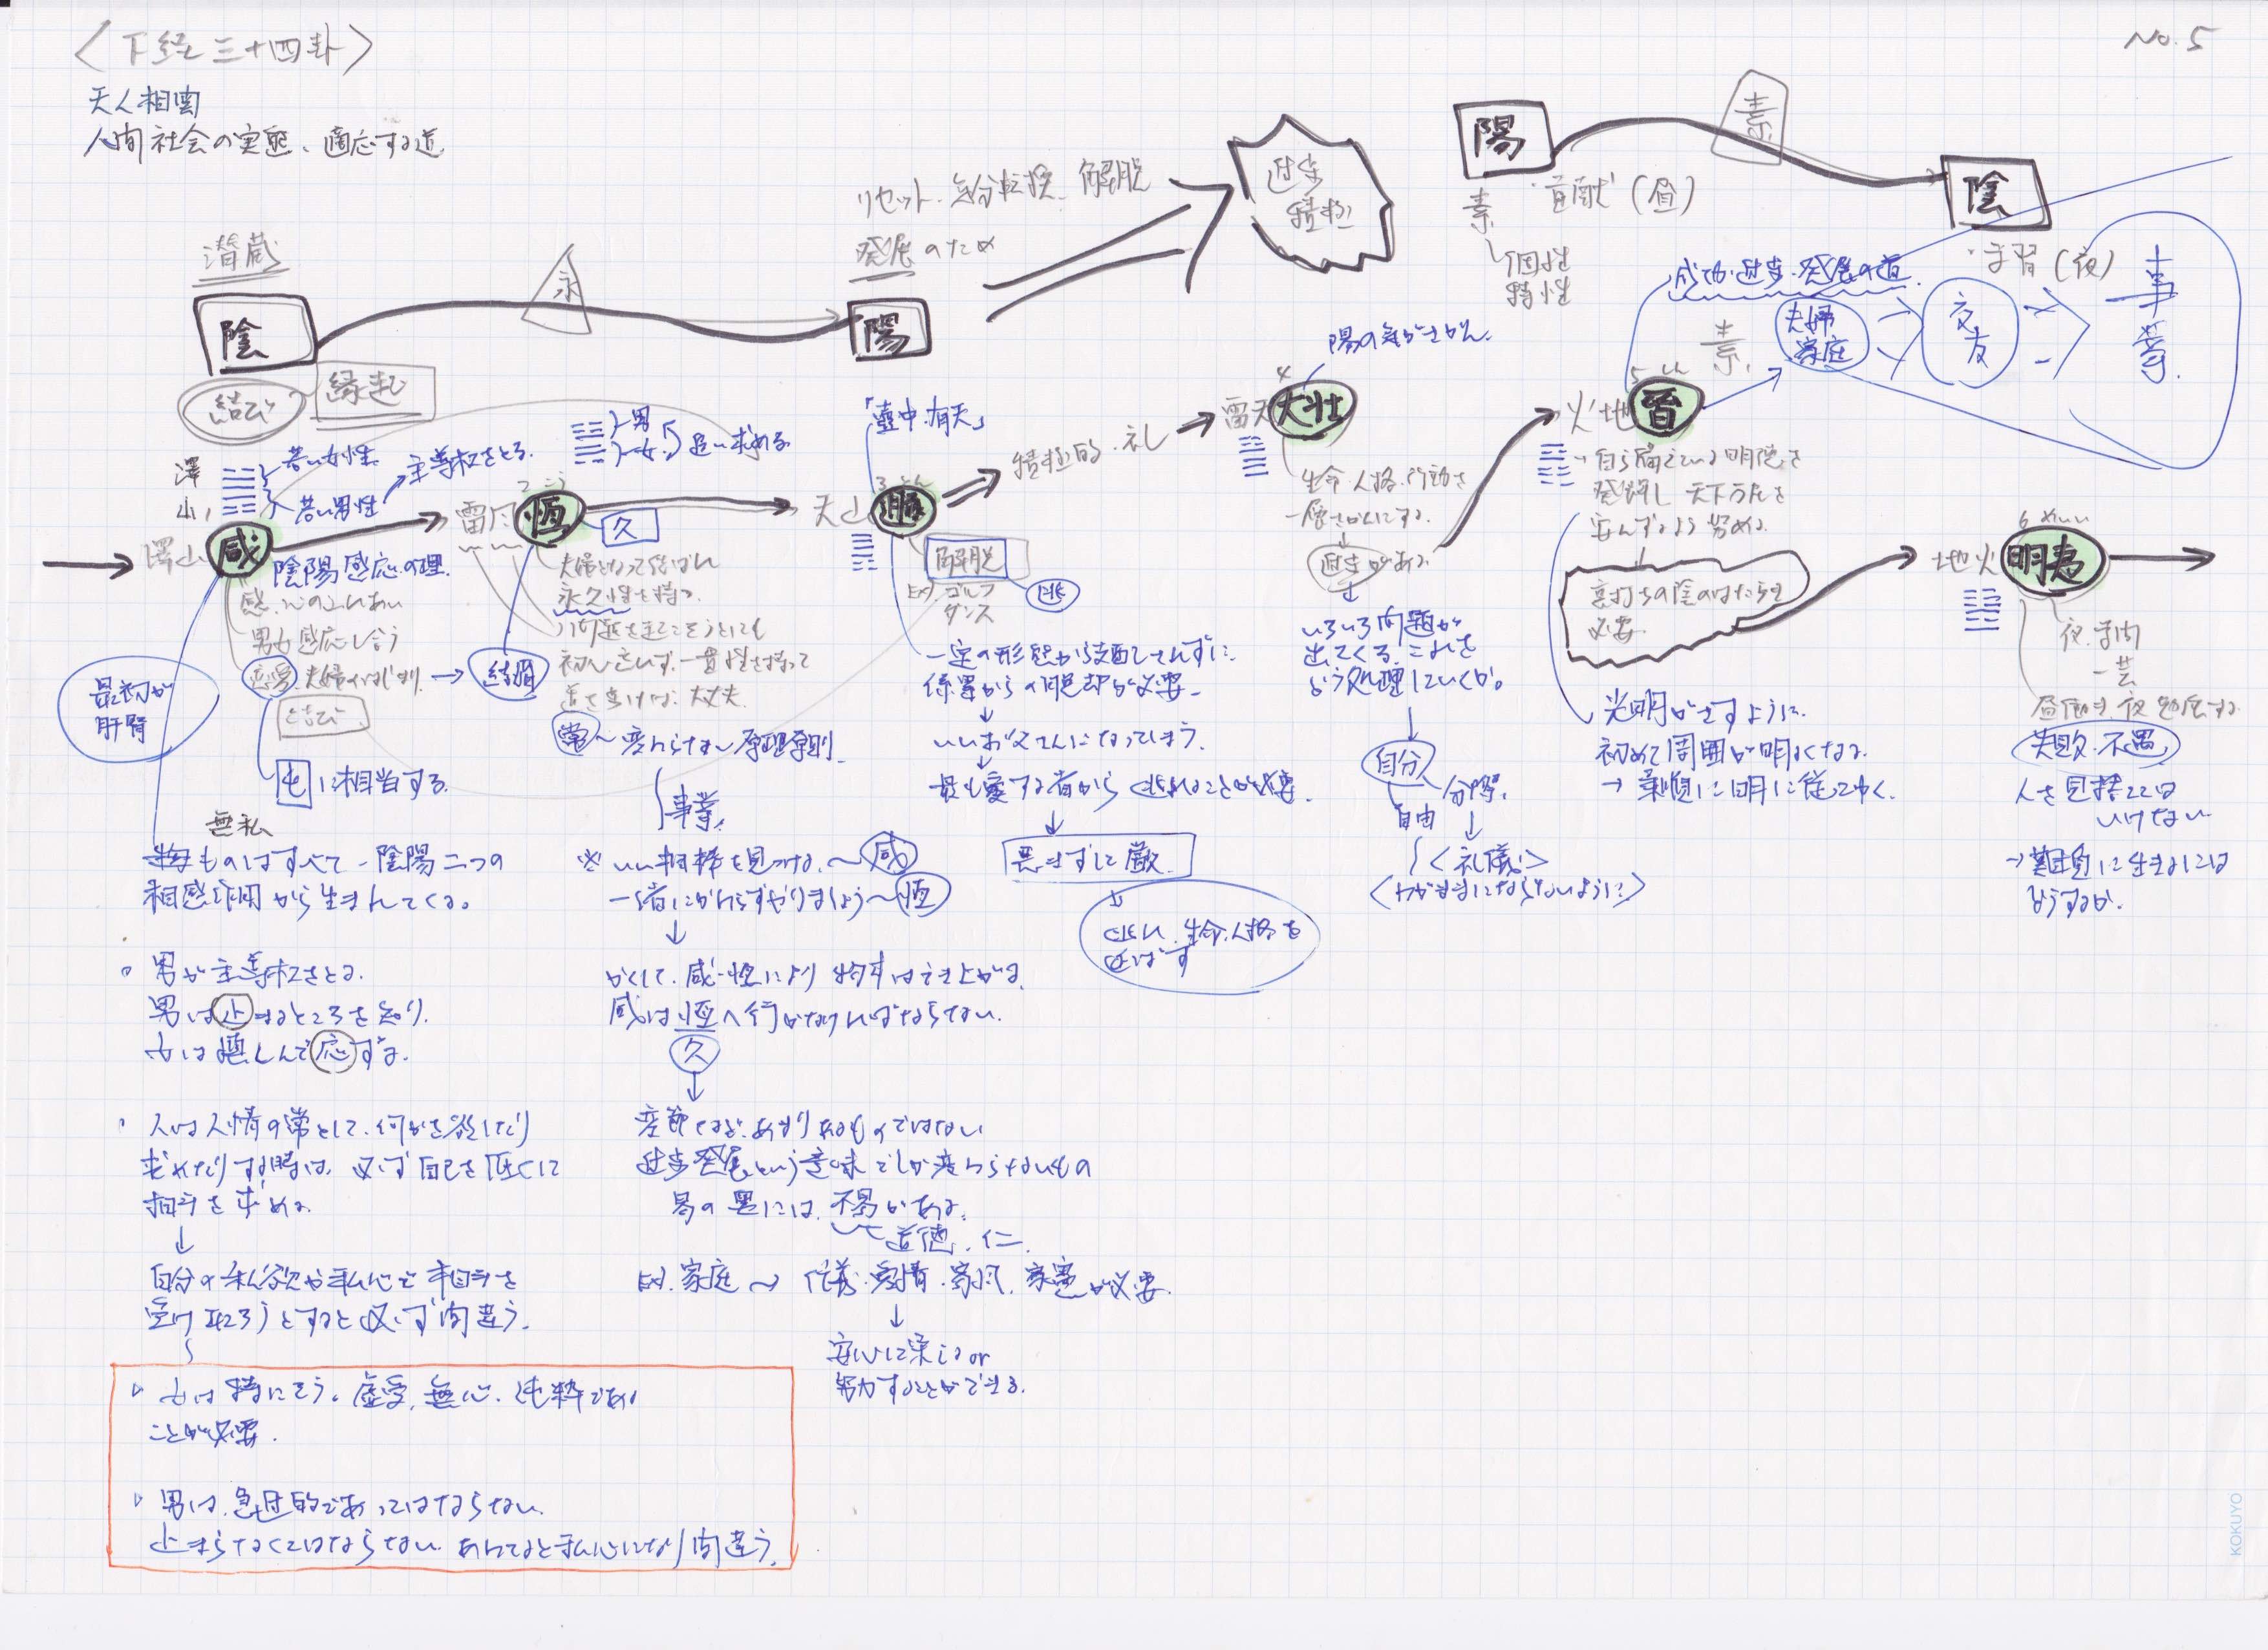 〈下経三十四卦〉
No.5
天人相関
人間社会の実態、適応する道
潜蔵
陰
永
リセット・気分転換・解脱
発展のため
陽
進歩
積極
陽
素
貢献(昼)
素
個性
特性
陰
学習(夜)
結び
縁起
成功・進歩・発展の道
素
夫婦
家庭
交友
事業
澤
山
若い女性
若い男性
主導権をとる
澤山
咸
陰陽感応の理
感、心のふれあい
男女感応し合う
恋愛 夫婦のはじまり
結び
屯に相当する
最初が
肝腎
男
女
追い求める
雷風
2 こう
恆
久
夫婦となって結ばれ
永久性を持つ
初心忘れず、一貫性を持って
大丈夫
結婚
常〜変わらない原理原則
事業
「壷中有天」
天山
3 とん
遯
解脱
Ex) ゴルフ
ダンス
逃
一定の形態から支配されずに
係累からの脱却が必要
いいお父さんになってしまう
最も愛する者から逃れることが必要
悪まずして厳
逃れ、生命、人格を
延ばす
積極的・礼
陽の気がさかん
4
雷天
大壮
生命・人格・行動を
一層さかんにする
進歩がある
いろいろ問題が
出てくる これを
どう処理していくか。
自分
自由
分際
〈礼儀〉
〈わがままにならないように〉
5 しん
火地
晋
自ら備えている明徳を
発揮し 天下万民を
安んずるよう努める
裏打ちの陰のはたらき
必要
光明がさすように
初めて周囲が明るくなる
→柔順に明に従ってゆく
6 めいい
地火
明夷
夜 学問
一芸
昼働き 夜勉強する
失敗・不遇
人を見捨てては
いけない
→艱難に生きるには
どうするか。
無私
ものはすべて 陰陽二つの
相感作用から生まれてくる。
男が主導権をとる
男は止まるところを知り
女は悦しんで応ずる
人は人情の常として、何かを欲したり
求めたりする時は、必ず自己を低くして
相手を求める
自分の私欲や私心で相手を
受け取ろうとすると必ず間違う。
女は特にそう。虚受、無心、純粋である
ことが必要
男は、急進的であってはならない
止まらなくてはならない あわてると私心になり間違う
※いい相棒を見つける〜咸
一緒にかわらずやりましょう〜恆
かくして、咸・恆により 物事はでき上がる
咸は恆へ行かなければならない
久
変節など、あまりあるものではない
進歩発展という意味でしか変わらないもの
易の裏には、不易がある
道徳、仁
Ex) 家庭 → 信義・愛情・家風、家憲が必要
安心して楽しる or
努力することができる
KOKUYO